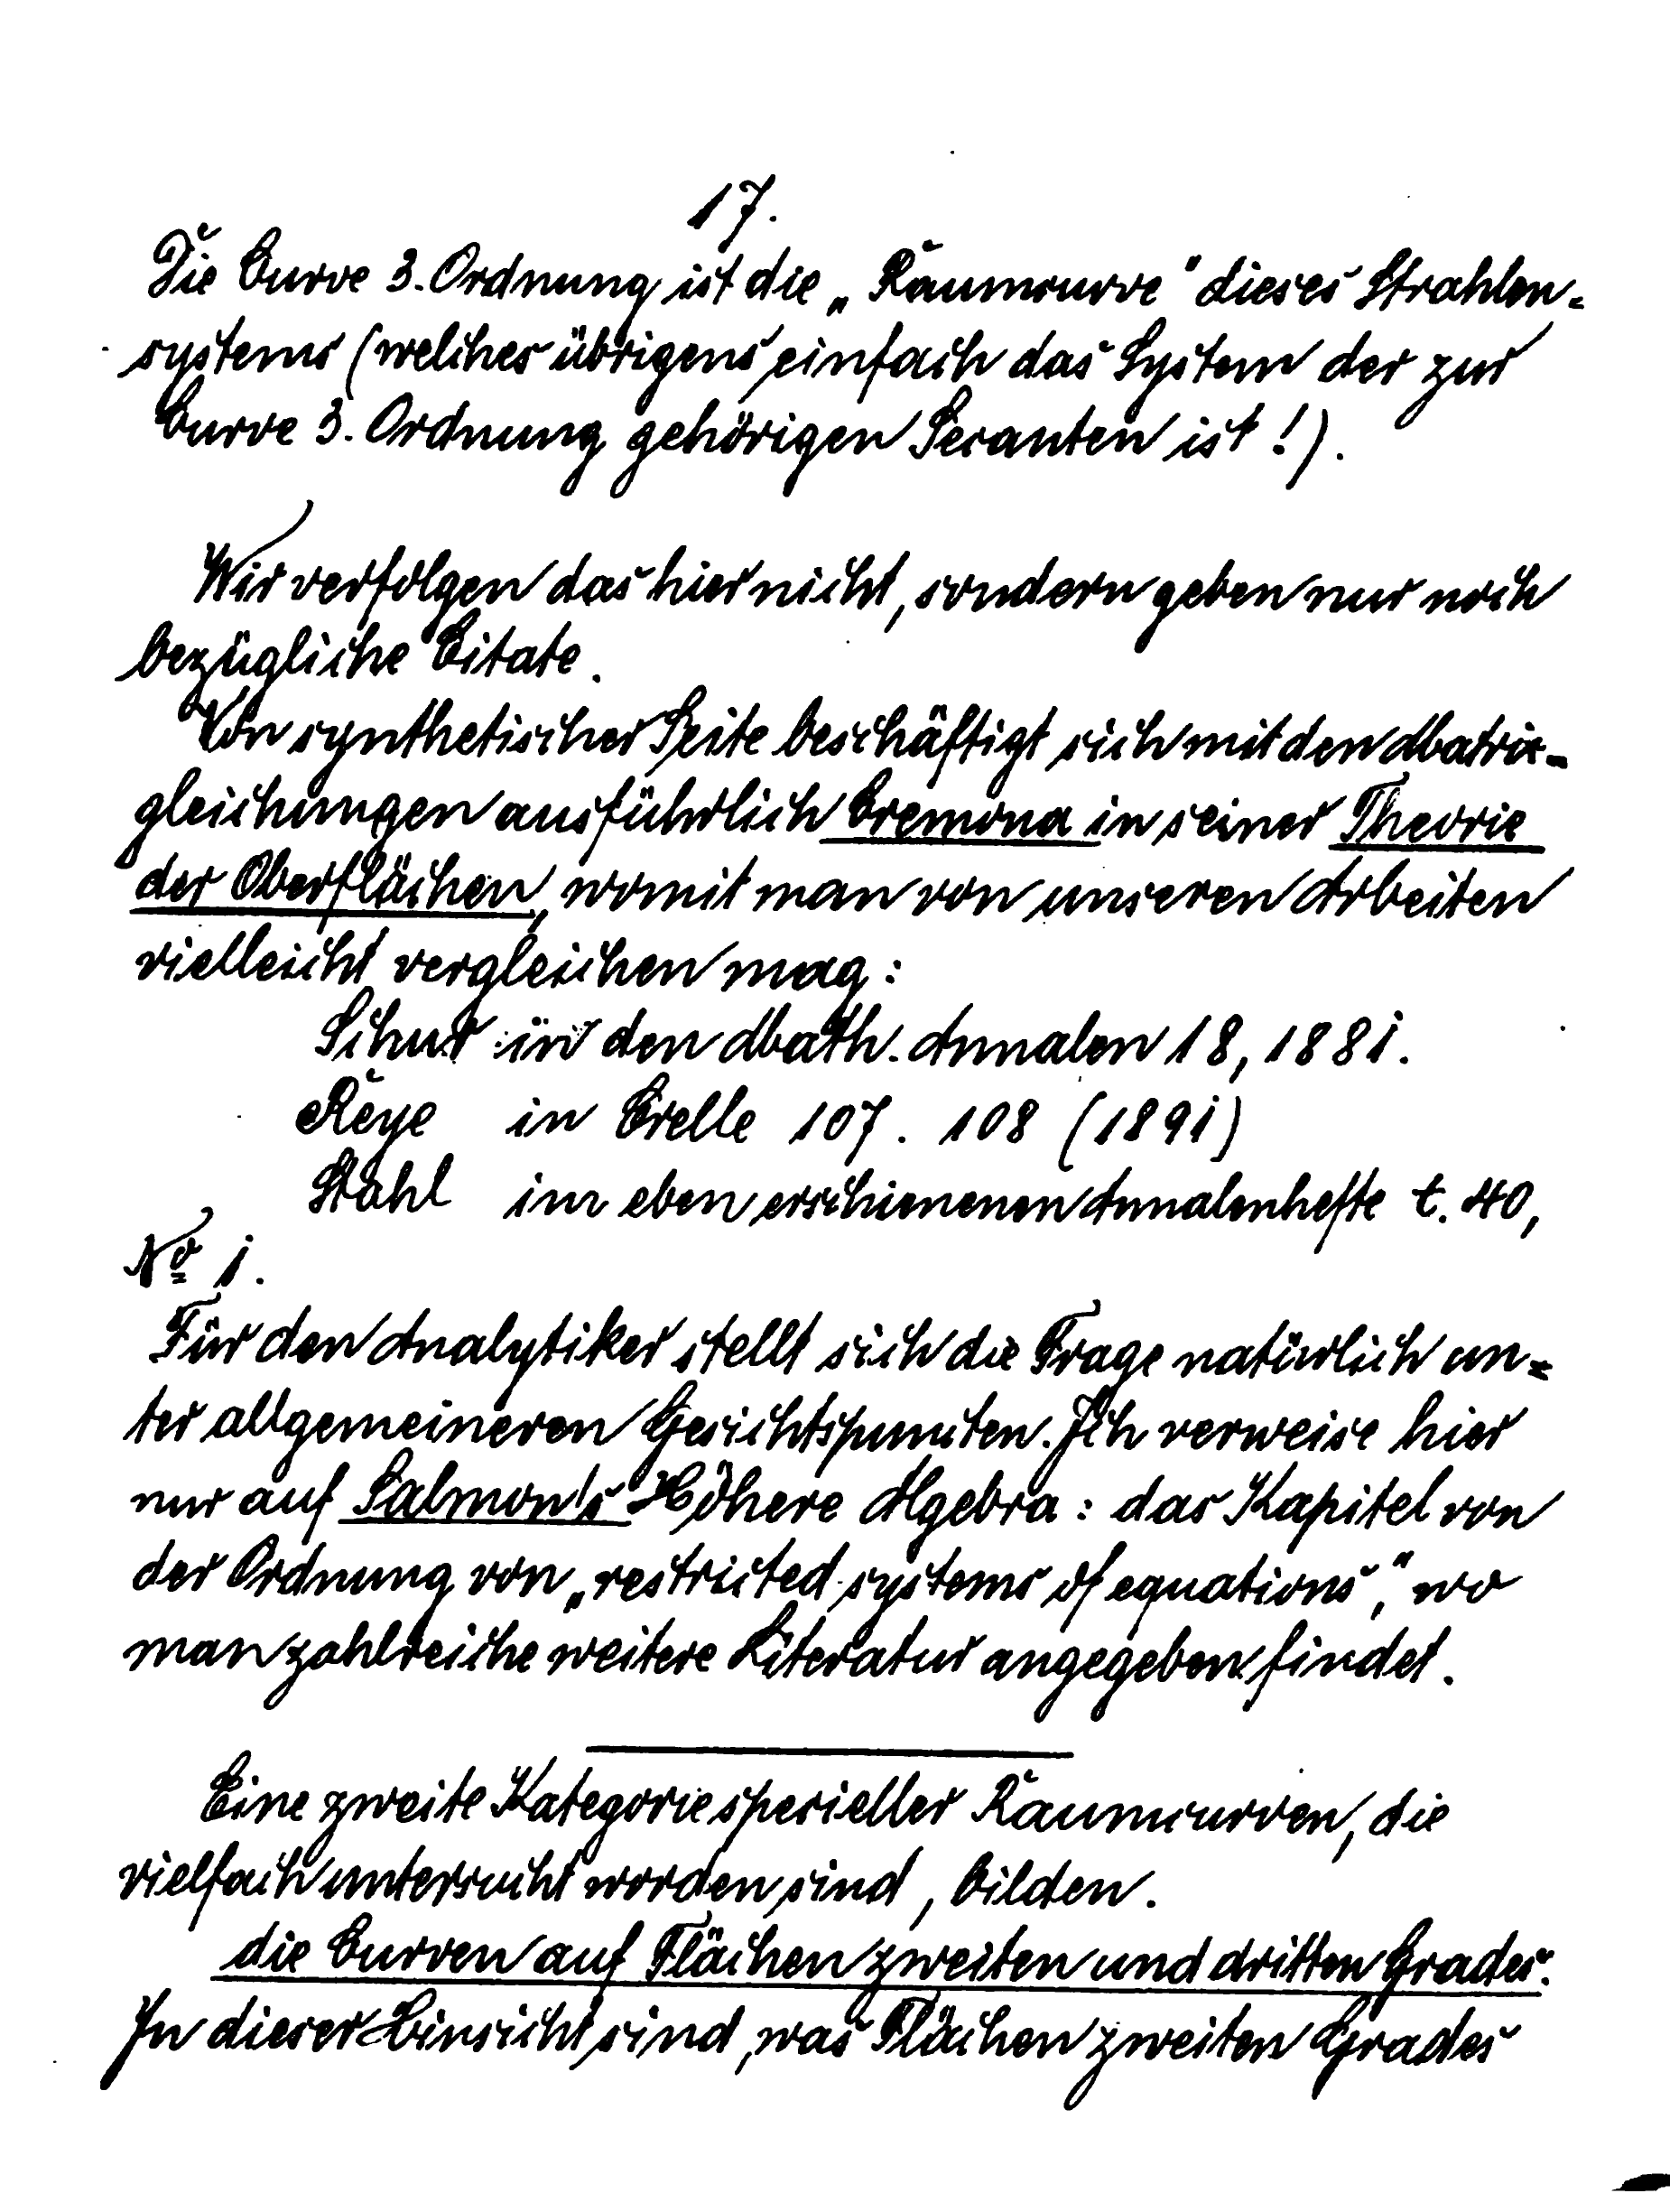 17.
Die Curve 3. Ordnung ist die „Raumcurve" dieses Strahlen-
systems (welches übrigens einfach das System der zur
Curve 3. Ordnung gehörigen Secanten ist!).
Wir verfolgen das hier nicht, sondern geben nur noch
bezügliche Citate.
Von synthetischer Seite beschäftigt sich mit den Matrix-
gleichungen ausführlich Cremona in seiner Theorie
der Oberflächen, womit man von unseren Arbeiten
vielleicht vergleichen mag:
Schur in den Math. Annalen 18, 1881.
Reye in Crelle 107. 108 (1891)
Stahl im eben erschienenen Annalenhefte t. 40,
No 1.
Für den Analytiker stellt sich die Frage natürlich un-
ter allgemeineren Gesichtspuncten. Ich verweise hier
nur auf Salmon's Höhere Algebra: das Kapitel von
der Ordnung von „restricted systems of equations", wo
man zahlreiche weitere Literatur angegeben findet.
Eine zweite Kategorie specieller Raumcurven, die
vielfach untersucht worden sind, bilden.
die Curven auf Flächen zweiten und dritten Grades.
In dieser Hinsicht sind, was Flächen zweiten Grades